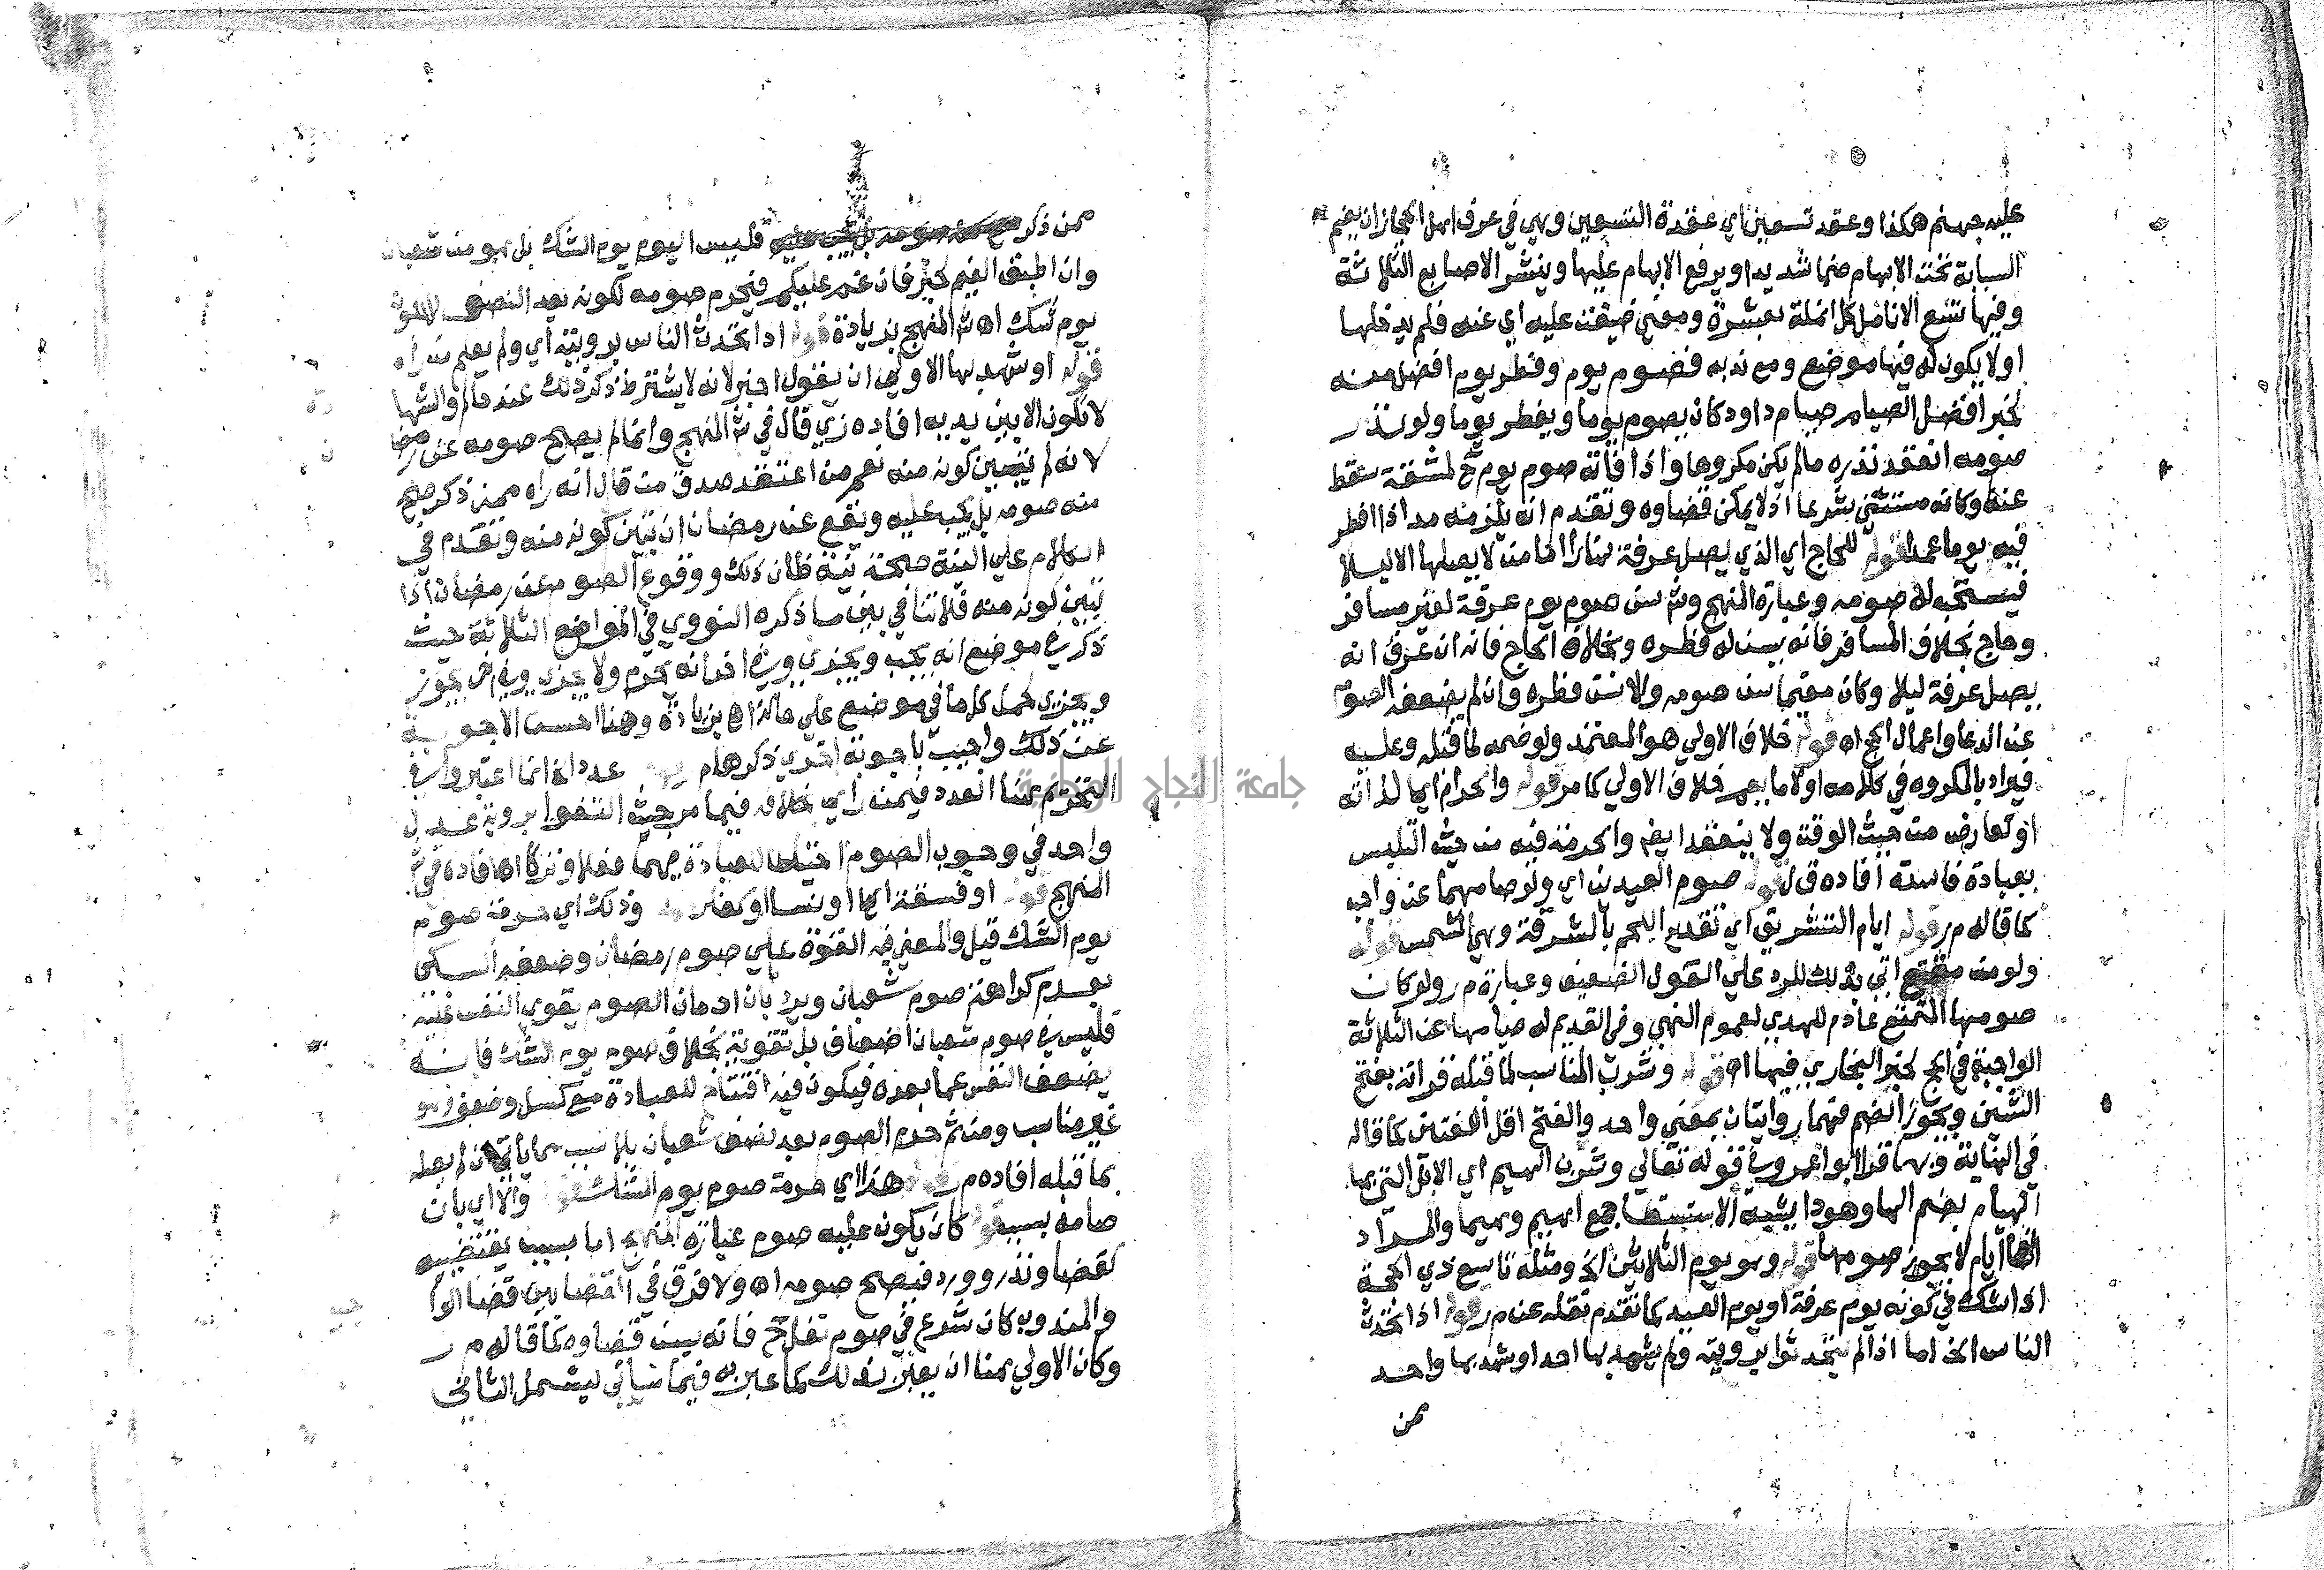 عليه جهنم هكذا وعقد تسعين اي عقدة التسعين وهي في عرف اهل الحجاز ان يضم
السبابة تحت الابهام ضما شديدا ويرفع الابهام عليها وينشر الاصابع الثلاثة
وفيها تسع الانامل كل انملة بعشرة ومعني ضيقت عليه اي عنه فلم يدخلها
اولا يكون له فيها موضع ومع ندبه فصوم يوم وفطر يوم افضل منه
لخبر افضل الصيام صيام داود كان يصوم يوما ويفطر يوما ولو نذر
صومه انعقد نذره ما لم يكن مكروها واذا فاته صوم يوم ح لمشقة سقط
عنه وكانه مستثني شرعا اذ لا يمكن قضاوه وتقدم انه يلزمه مد اذا افطر
فيه يوما عمدا قوله للحاج اي الذي يصل عرفة نهارا اما من لا يصلها الا ليلا
فيستحب له صومه وعبارة المنهج وش سن صوم يوم عرفة لغير مسافر
وحاج بخلاف المسافر فانه يسن له فطره وبخلاف الحاج فانه ان عرف انه
يصل عرفة ليلا وكان مقيما سن صومه والا سن فطره وان لم يضعفه الصوم
عن الدعا واعمال الحج اه قوله خلاف الاولي هو المعتمد ولو ضمه لما قبله وعليه
فيراد بالمكروه في كلامه اولا ما يعم خلاف الاولي كما مر قوله والحرام اما لذاته
او لعارض من حيث الوقت ولا ينعقد ايضا والحرمة فيه من حيث التلبس
بعبادة فاسدة افاده ق ل قوله صوم العيدين اي ولو صامهما عن واجب
كما قاله م ر قوله ايام التشريق اي تقديم اللحم بالشرقة وهي الشمس قوله
ولو من متمتع اتي بذلك للرد علي القول الضعيف وعبارة م ر ولو كان
صومها المتمتع عادم للهدي لعموم النهي وفي القديم له صيامها عن الثلاثة
الواجبة في الحج لخبر البخاري فيها اه قوله وشرب المناسب لما قبله قراته بفتح
الشين ويجوز الضم فهما روايتان بمعني واحد والفتح اقل اللغتين كما قاله
في النهاية وبهما قرا ابو عمرو في قوله تعالي وشرب الهيم اي الابل التي بها
الهيام بضم الها وهو دا يشبه الاستسقا جمع اهيم وهيما والمراد
انها ايام لا يجوز صومها قوله وهو يوم الثلاثين الخ ومثله تاسع ذي الحجة
اذا شك في كونه يوم عرفة او يوم العيد كما تقدم نقله عن م ر قوله اذا تحدث
الناس الخ اما اذا لم يتحدثوا برويته ولم يشهد بها احد او شهد بها واحد
ممن
ممن ذكر فليس اليوم يوم الشك بل هو من شعبان
وان اطبق الغيم لخبر فان غم عليكم فيحرم صومه لكونه بعد النصف لا لكونه
يوم شك اه ش المنهج بزيادة قوله اذا تحدث الناس برويته اي ولم يعلم من راه
قوله او شهد بها الاولي ان يقول اخبر لانه لا يشترط ذكر ذلك عند حاكم والشها
لا تكون الا بين يديه افاده زي قال في ش المنهج وانما لم يصح صومه عن رمضا
لانه لم يتبين كونه منه نعم من اعتقد صدق من قال انه راه ممن ذكر صح
منه صومه بل يجب عليه ويقع عن رمضان ان تبين كونه منه وتقدم في
الكلام علي النية صحة نية ظان ذلك ووقوع الصوم عن رمضان اذا
تبين كونه منه فلا تنافي بين ما ذكره النووي في المواضع الثلاثة حيث
ذكر في موضع انه يجب ويجزي وفي اخر انه يحرم ولا يجزي وفي اخر يجوز
ويجزي حمل كلا ما في موضع علي حالة اه بزيادة وهذا احسن الاجوبة
عن ذلك واجيب باجوبة اخري ذكرها م ر قوله عدد الخ انما اعتبروا في
التحريم هنا العدد فيمن راي خلافه فيما مر حيث اكتفوا بروية عدل
واحد في وجوب الصوم احتياطا للعبادة فيهما فعلا وتركا اه افاده في ش
المنهج قوله او فسقة اي او نسا او كفار قوله وذلك اي حرمة صوم
يوم الشك قيل والمعني فيه القوة علي صوم رمضان وضعفه السبكي
بعدم كراهة صوم شعبان ويرد بان ادمان الصوم يقوي النفس عليه
فليس في صوم شعبان اضعاف بل تقوية بخلاف صوم يوم الشك فانه
يضعف النفس عما بعده فيكون فيه افتتاح للعبادة مع كسل وضعف وهو
غير مناسب ومن ثم حرم الصوم بعد نصف شعبان بلا سبب مما ياتي ان لم يصله
بما قبله افاده م ر قوله هذا اي حرمة صوم يوم الشك قوله والا اي بان
صامه بسبب قوله كان يكون عليه صوم عبارة المنهج اما بسبب يقتضيه
كقضا ونذر وورد فيصح صومه اه ولا فرق في القضا بين قضا الوا
والمندوب كان شرع في صوم نفل ح فانه يسن قضاوه كما قاله م ر
وكان الاولي هنا ان يعبر بذلك كما عبر به فيما سياتي ليشمل الثاني
جامعة النجاح الوطنية